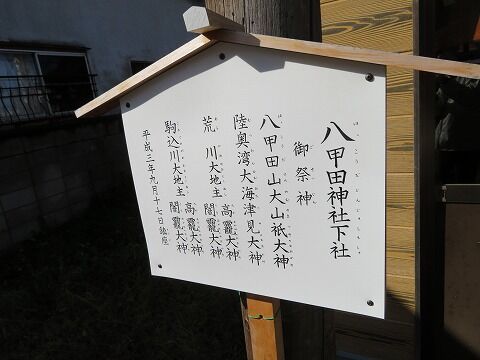 八甲田神社下社
御祭神
八甲田山大山祇大神
陸奥湾大海津見大神
荒川大地主 高龗大神 闇龗大神
駒込川大地主 高龗大神 闇龗大神
平成三年九月十七日鎮座